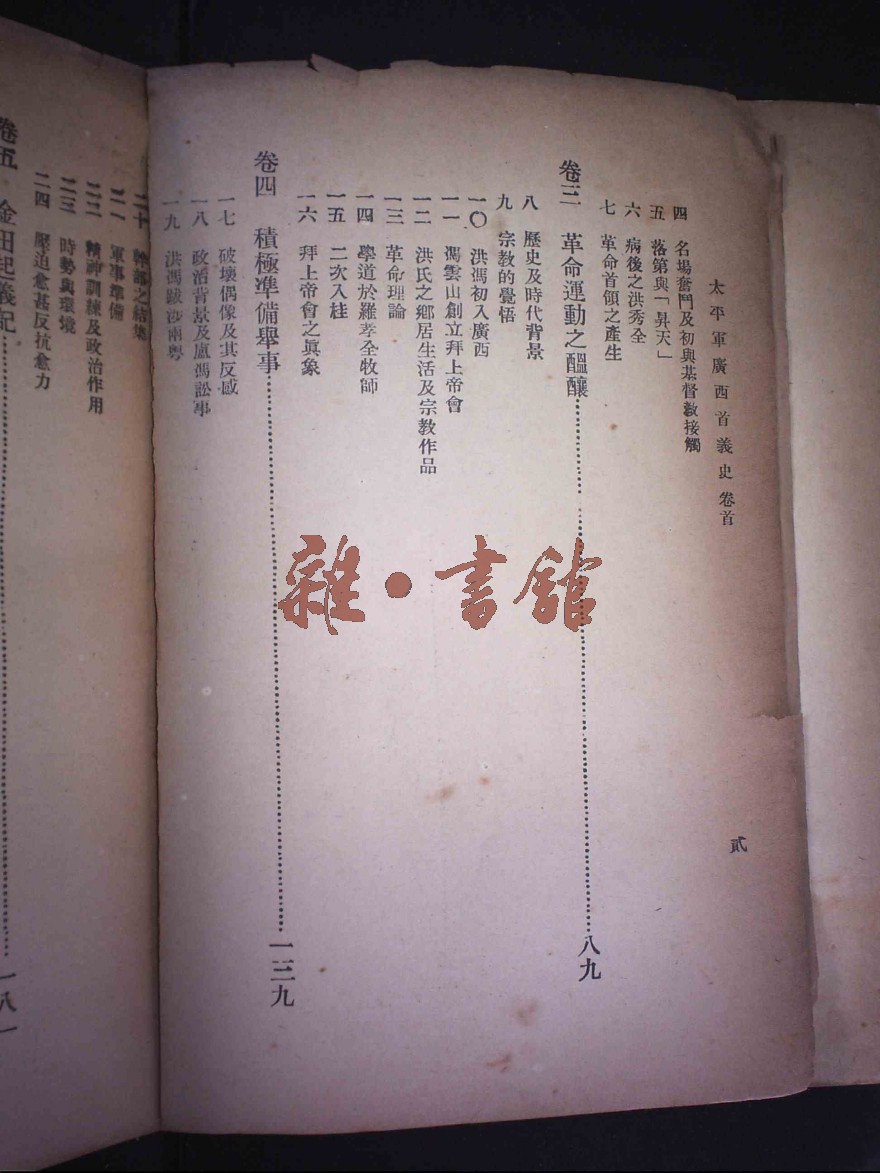 太平軍廣西首義史 卷首
四 名場奮鬥及初與基督教接觸
五 落第與「昇天」
六 病後之洪秀全
七 革命首領之產生
卷三 革命運動之醞釀……八九
八 歷史及時代背景
九 宗教的覺悟
一〇 洪馮初入廣西
一一 馮雲山創立拜上帝會
一二 洪氏之鄉居生活及宗教作品
一三 革命理論
一四 學道於羅孝全牧師
一五 二次入桂
一六 拜上帝會之眞象
卷四 積極準備舉事……一三九
一七 破壞偶像及其反感
一八 政治背景及盧馮訟事
一九 洪馮跋涉南粵
二十 之結集
二一 軍事準備
二二 精神訓練及政治作用
二三 時勢與環境
二四 壓迫愈甚反抗愈力
卷五 金田起義記……一八一
貳
雜·書館